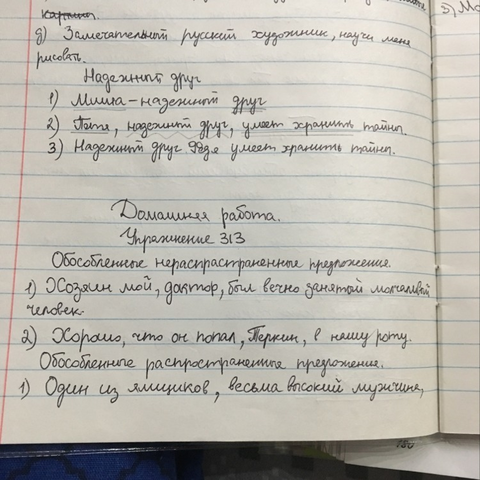 картин.
д) Замечательный русский художник, научи меня
рисовать.
Надежный друг
1) Миша – надежный друг
2) Петя, надежный друг, умеет хранить тайны.
3) Надежный друг Федя умеет хранить тайны.
Домашняя работа.
Упражнение 313
Обособленные нераспространенные предложение.
1) Хозяин мой, доктор, был вечно занятый молчаливый
человек.
2) Хорошо, что он попал, Теркин, в нашу роту.
Обособленные распространенные предложения.
1) Один из ямщиков, весьма высокий мужчина,